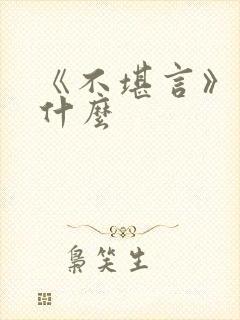 《不堪言》
什麼
梟笑生